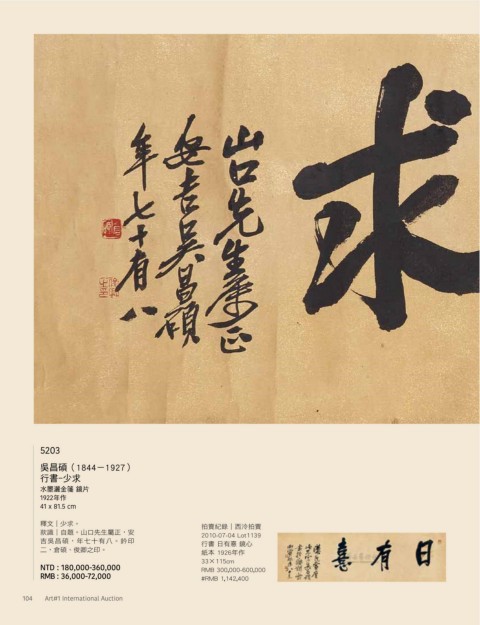 求
山口先生屬正
安吉吳昌碩
年七十有八
5203
吳昌碩（1844－1927）
行書-少求
水墨灑金箋 鏡片
1922年作
41 x 81.5 cm
釋文｜少求。
款識｜自題，山口先生屬正，安
吉吳昌碩，年七十有八。鈐印
二，倉碩、俊卿之印。
NTD : 180,000-360,000
RMB : 36,000-72,000
拍賣紀錄｜西泠拍賣
2010-07-04 Lot1139
行書 日有憙 鏡心
紙本 1926年作
33×115cm
RMB 300,000-600,000
#RMB 1,142,400
日有憙
104 Art#1 International Auction